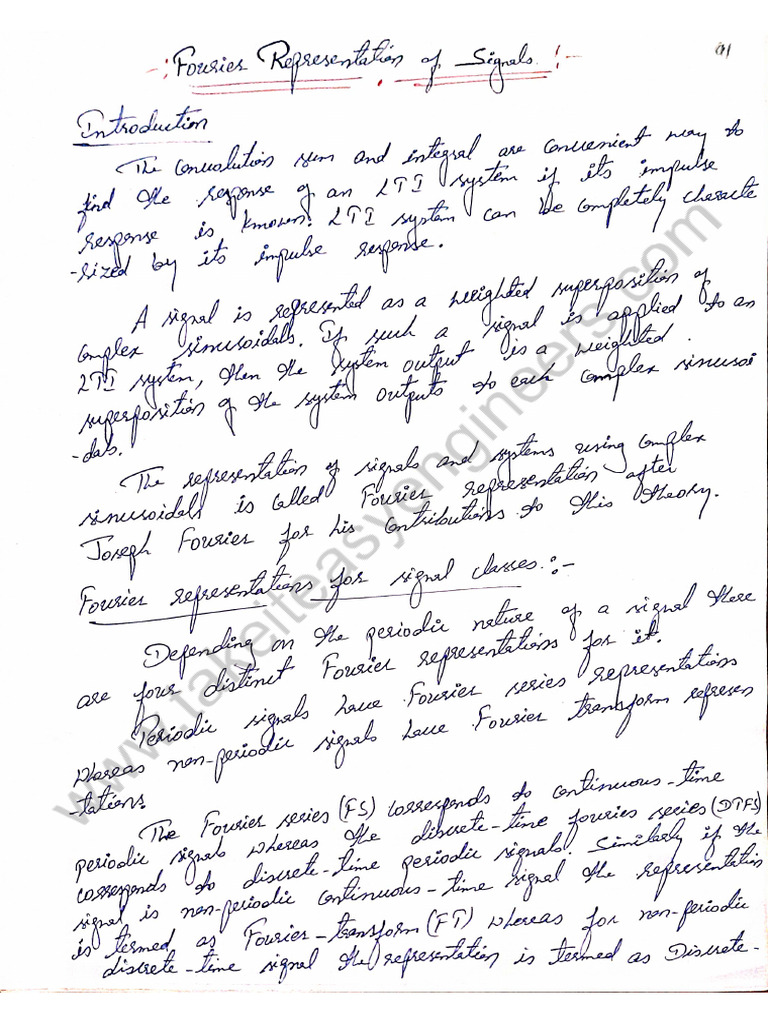 -: Fourier Representation of Signals :-
01
Introduction
The convolution sum and integral are convenient way to
find the response of an LTI system if its impulse
response is known. LTI system can be completely characte
-sized by its impulse response.
A signal is represented as a weighted superposition of
complex sinusoidals. If such a signal is applied to an
LTI system, then the system output is a weighted
superposition of the system outputs to each complex sinusoi
-dals.
The representation of signals and systems using complex
sinusoidals is called Fourier representation after
Joseph Fourier for his contributions to this theory.
Fourier representations for signal classes :-
Depending on the periodic nature of a signal there
are four distinct Fourier representations for it.
Periodic signals have Fourier series representations
whereas non-periodic signals have Fourier transform represen
-tations.
The Fourier series (FS) corresponds to continuous-time
periodic signals whereas the discrete-time fourier series (DTFS)
corresponds to discrete-time periodic signals. Similarly if the
signal is non-periodic continuous-time signal the representation
is termed as Fourier-transform (FT) whereas for non-periodic
discrete-time signal the representation is termed as Discrete-
www.takeiteasyengineers.com